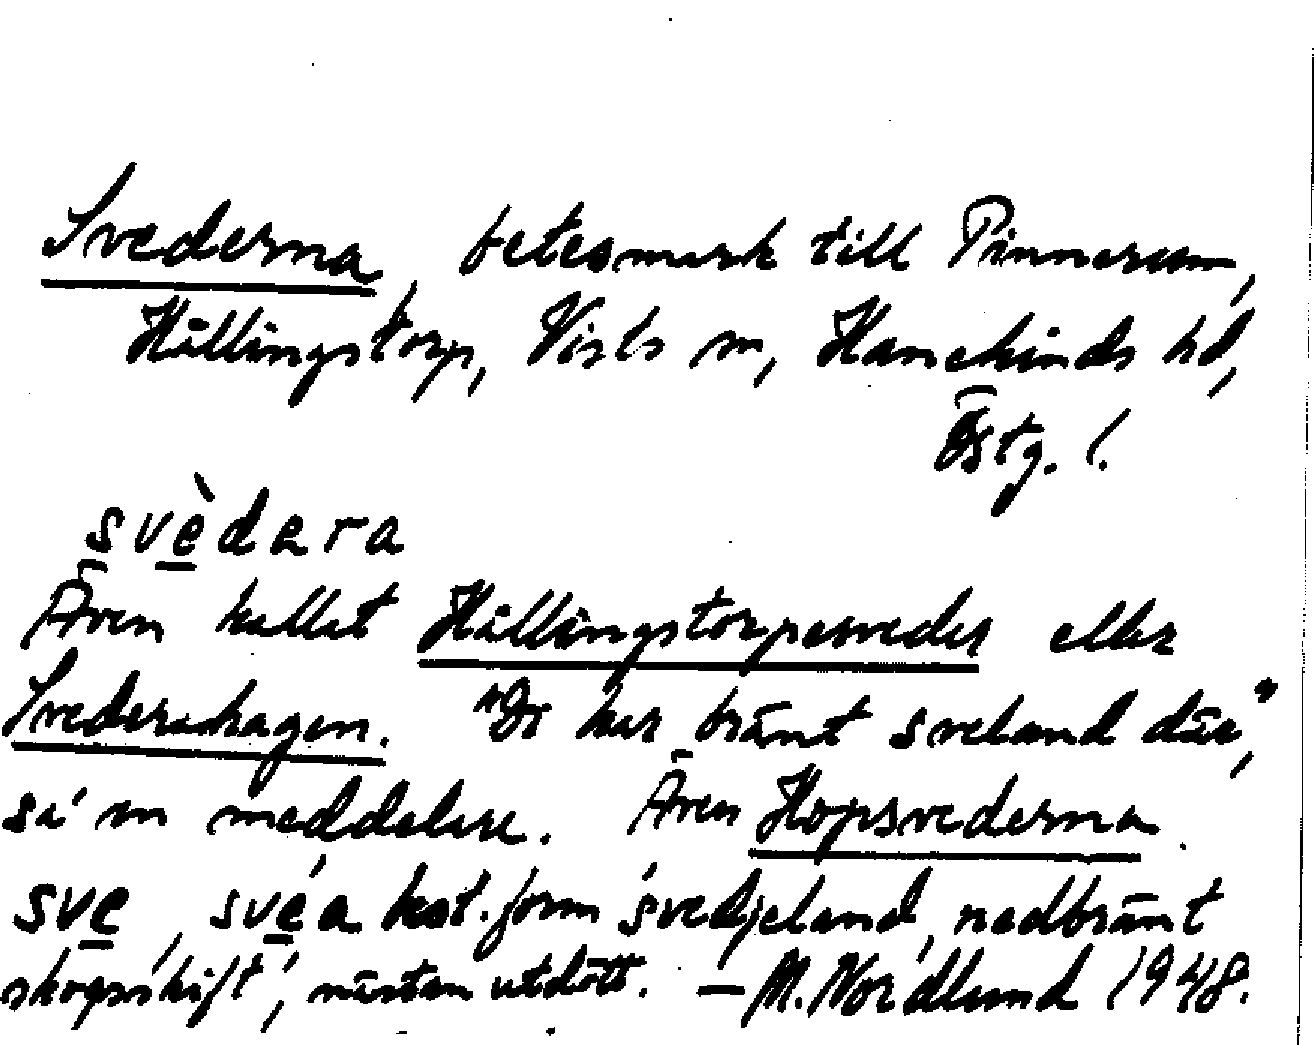 Svederna, betesmark till Pinnarum,
Hällingstorp, Vists sn, Hanekinds hd,
Östg. l.
svèdara
Även kallat Hällingstorpesveder eller
Svedernahagen. "De har bränt sveland där",
sa en meddelare. Även Hopsvederna.
sve, svéa best. form 'svedjeland, nedbränt
skogsskift', nästan utdött. — M. Nordlund 1948.